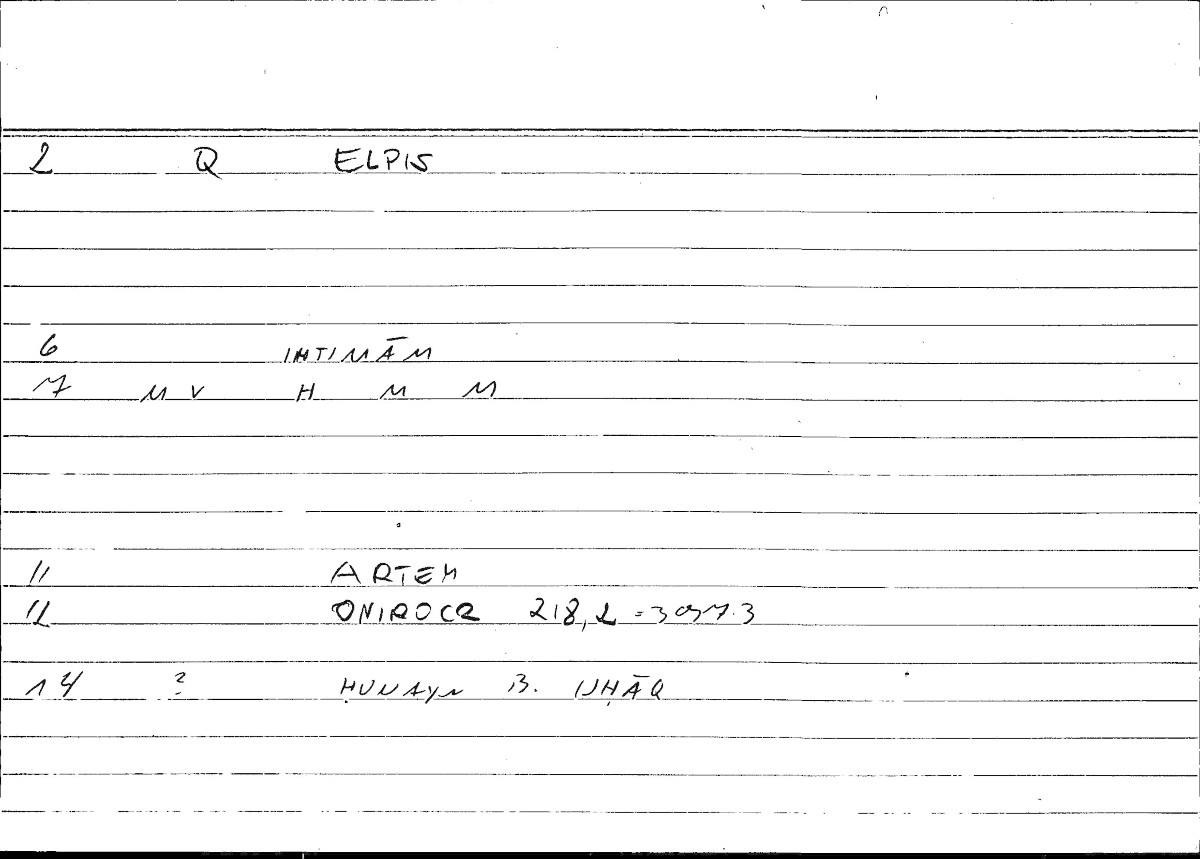 2 Q ELPIS
6 IHTIMĀM
7 MV H M M
11 ARTEM
12 ONIROCR 218,2 = 397.3
14 ? ḤUNAYN B. ISḤĀQ